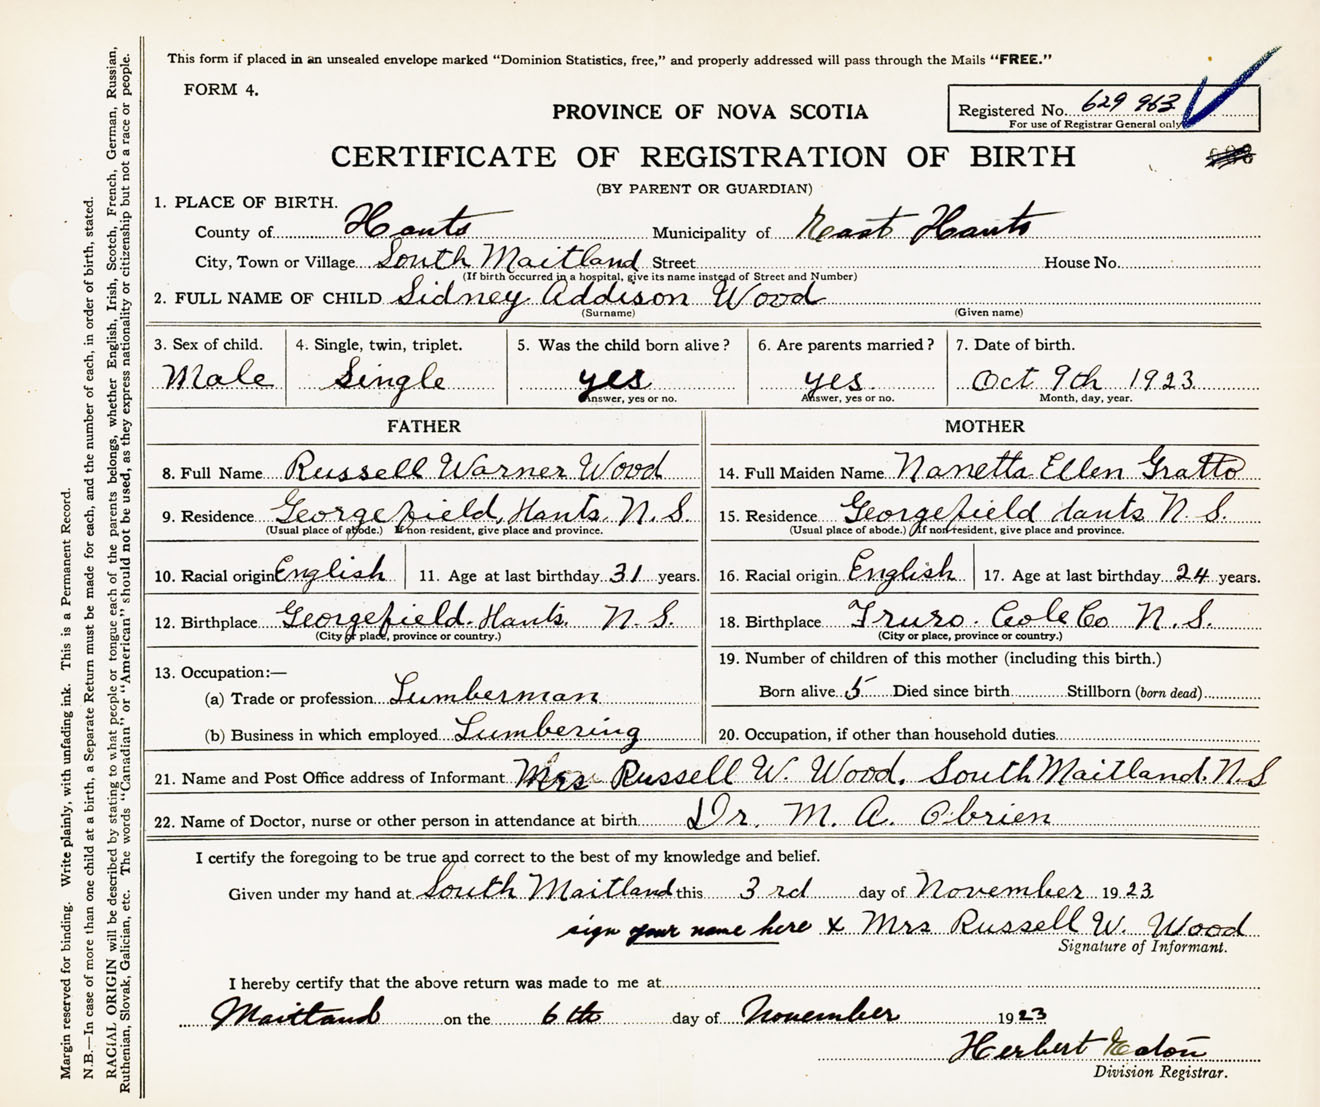 This form if placed in an unsealed envelope marked “Dominion Statistics, free,” and properly addressed will pass through the Mails “FREE.”
FORM 4.
Registered No. 629 963
For use of Registrar General only
PROVINCE OF NOVA SCOTIA
CERTIFICATE OF REGISTRATION OF BIRTH
(BY PARENT OR GUARDIAN)
1. PLACE OF BIRTH.
County of Hants Municipality of East Hants
City, Town or Village South Maitland Street House No.
(If birth occurred in a hospital, give its name instead of Street and Number)
2. FULL NAME OF CHILD Sidney Addison Wood
(Surname) (Given name)
3. Sex of child. 4. Single, twin, triplet. 5. Was the child born alive? 6. Are parents married? 7. Date of birth.
Male Single yes yes Oct 9th 1923
Answer, yes or no. Answer, yes or no. Month, day, year.
FATHER MOTHER
8. Full Name Russell Warner Wood 14. Full Maiden Name Nanetta Ellen Gratto
9. Residence Georgefield, Hants. N. S. 15. Residence Georgefield Hants N. S.
(Usual place of abode.) If non-resident, give place and province. (Usual place of abode.) If non-resident, give place and province.
10. Racial origin English 11. Age at last birthday 31 years. 16. Racial origin English 17. Age at last birthday 24 years.
12. Birthplace Georgefield. Hants. N. S. 18. Birthplace Truro. Cole Co N. S.
(City or place, province or country.) (City or place, province or country.)
13. Occupation:— 19. Number of children of this mother (including this birth.)
(a) Trade or profession Lumberman Born alive 5 Died since birth Stillborn (born dead)
(b) Business in which employed Lumbering 20. Occupation, if other than household duties
21. Name and Post Office address of Informant Mrs Russell W. Wood. South Maitland. N.S
22. Name of Doctor, nurse or other person in attendance at birth Dr. M. A. O'brien
I certify the foregoing to be true and correct to the best of my knowledge and belief.
Given under my hand at South Maitland this 3rd day of November 1923
sign your name here x Mrs Russell W. Wood
Signature of Informant.
I hereby certify that the above return was made to me at
Maitland on the 6th day of November 1923
Herbert Eaton
Division Registrar.
Margin reserved for binding. Write plainly, with unfading ink. This is a Permanent Record.
N.B.—In case of more than one child at a birth, a Separate Return must be made for each, and the number of each, in order of birth, stated.
RACIAL ORIGIN will be described by stating to what people or tongue each of the parents belongs, whether English, Irish, Scotch, French, German, Russian,
Ruthenian, Slovak, Galician, etc. The words “Canadian” or “American” should not be used, as they express nationality or citizenship but not a race or people.